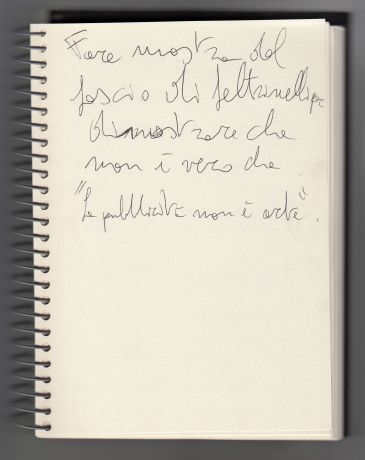 Fare mostra del
fascio di feltrinelli per
dimostrare che
non è vero che
"la pubblicità non è arte".